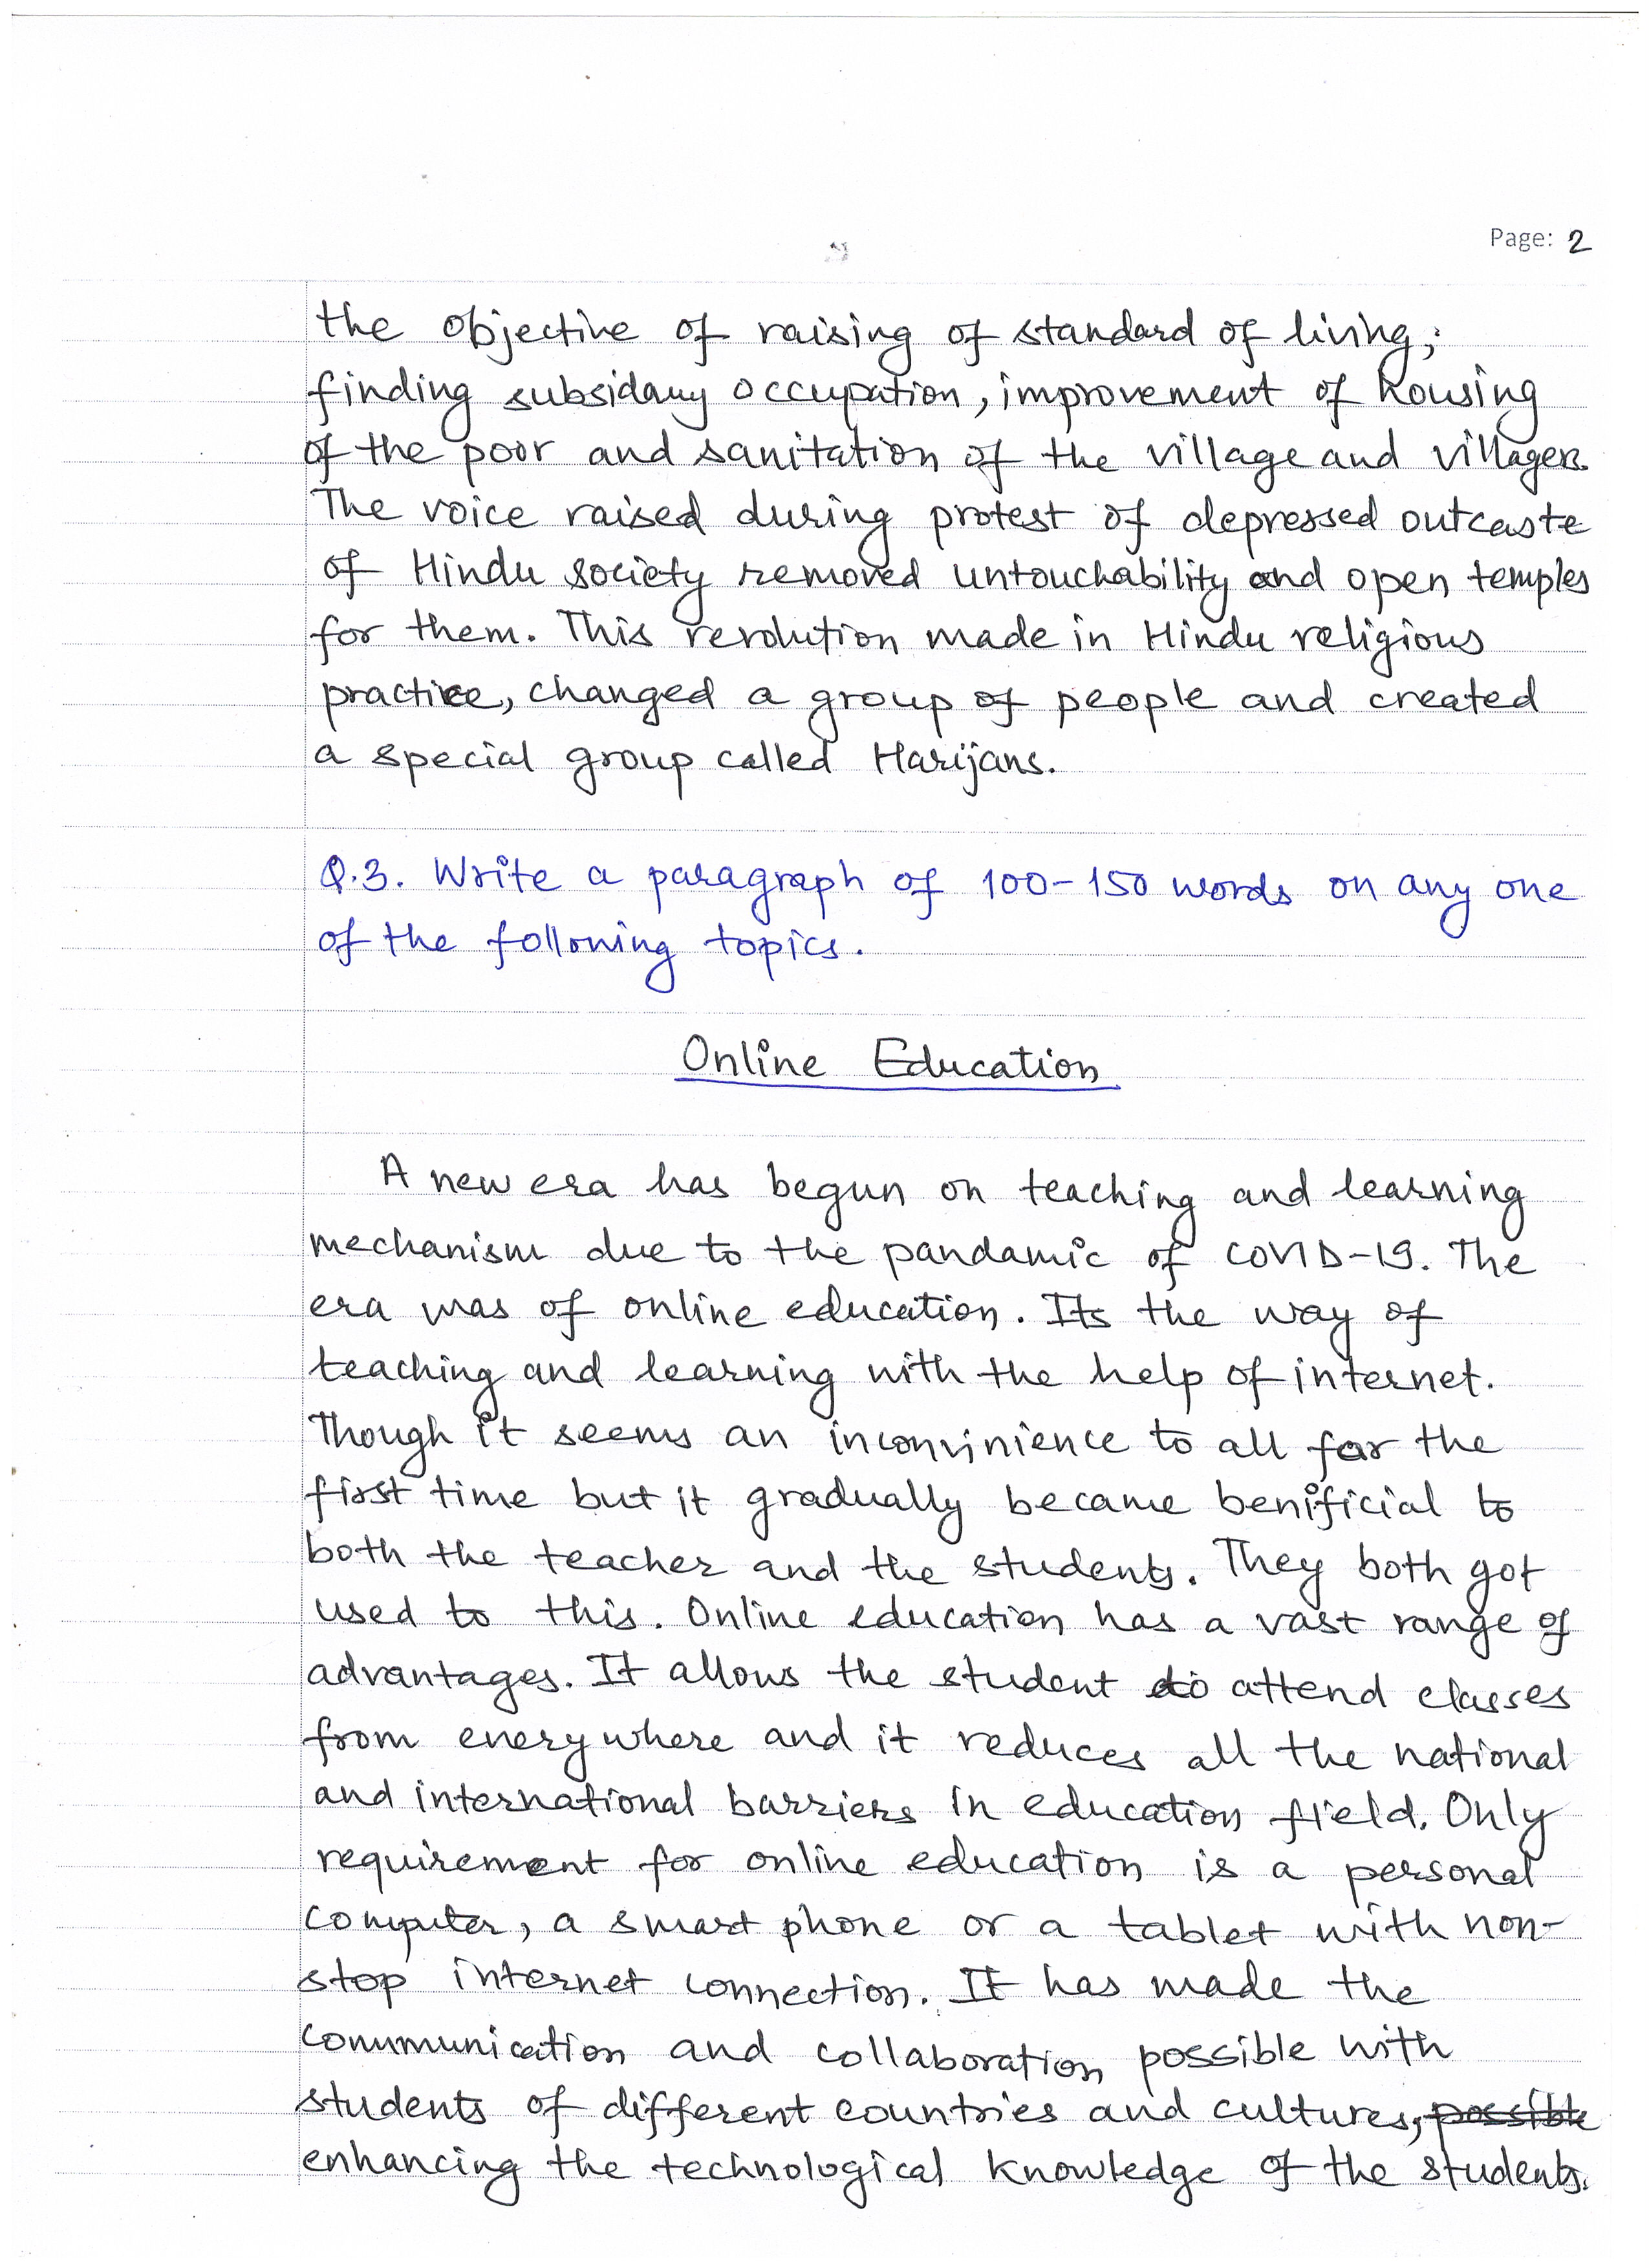 Page: 2
the objective of raising of standard of living;
finding subsidary occupation, improvement of housing
of the poor and sanitation of the village and villagers.
The voice raised during protest of depressed outcaste
of Hindu society removed untouchability and open temples
for them. This revolution made in Hindu religious
practice, changed a group of people and created
a special group called Harijans.
Q.3. Write a paragraph of 100-150 words on any one
of the following topics.
Online Education
A new era has begun on teaching and learning
mechanism due to the pandamic of COVID-19. The
era was of online education. Its the way of
teaching and learning with the help of internet.
Though it seems an inconvinience to all for the
first time but it gradually became benificial to
both the teacher and the students. They both got
used to this. Online education has a vast range of
advantages. It allows the student to attend classes
from everywhere and it reduces all the national
and international barriers in education field. Only
requirement for online education is a personal
computer, a smart phone or a tablet with non-
stop internet connection. It has made the
communication and collaboration possible with
students of different countries and cultures, possible
enhancing the technological knowledge of the students.